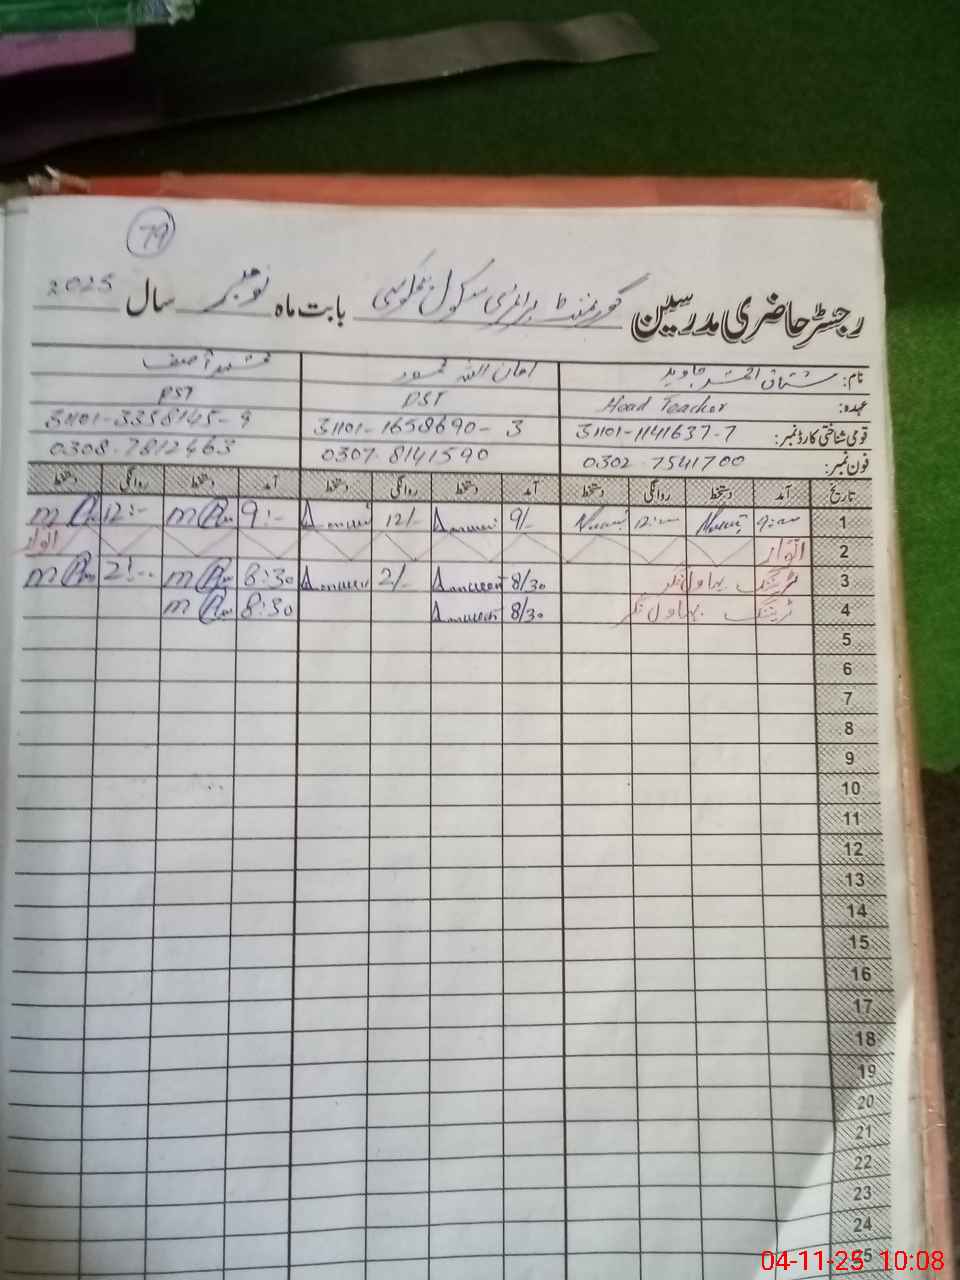 79
رجسٹر حاضری مدرسین گورنمنٹ پرائمری سکول بابت ماہ نومبر سال 2025
نام: مشتاق احمد جاوید امان اللہ محمود آصف
عہدہ: Head Teacher PST PST
قومی شناختی کارڈ نمبر: 31101-1141637-7 31101-1658690-3 31101-3358145-9
فون نمبر: 0302-7541700 0307-8141590 0308-7812463
تاریخ آمد دستخط روانگی دستخط آمد دستخط روانگی دستخط آمد دستخط روانگی دستخط
1 9:00 12:00 9/- 12/- 9:- 12:-
2 اتوار اتوار
3 ٹریننگ بہاولنگر 8/30 2/- 8:30 2:-
4 ٹریننگ بہاولنگر 8/30 8:30
5
6
7
8
9
10
11
12
13
14
15
16
17
18
19
20
21
22
23
24
25
04-11-25 10:08